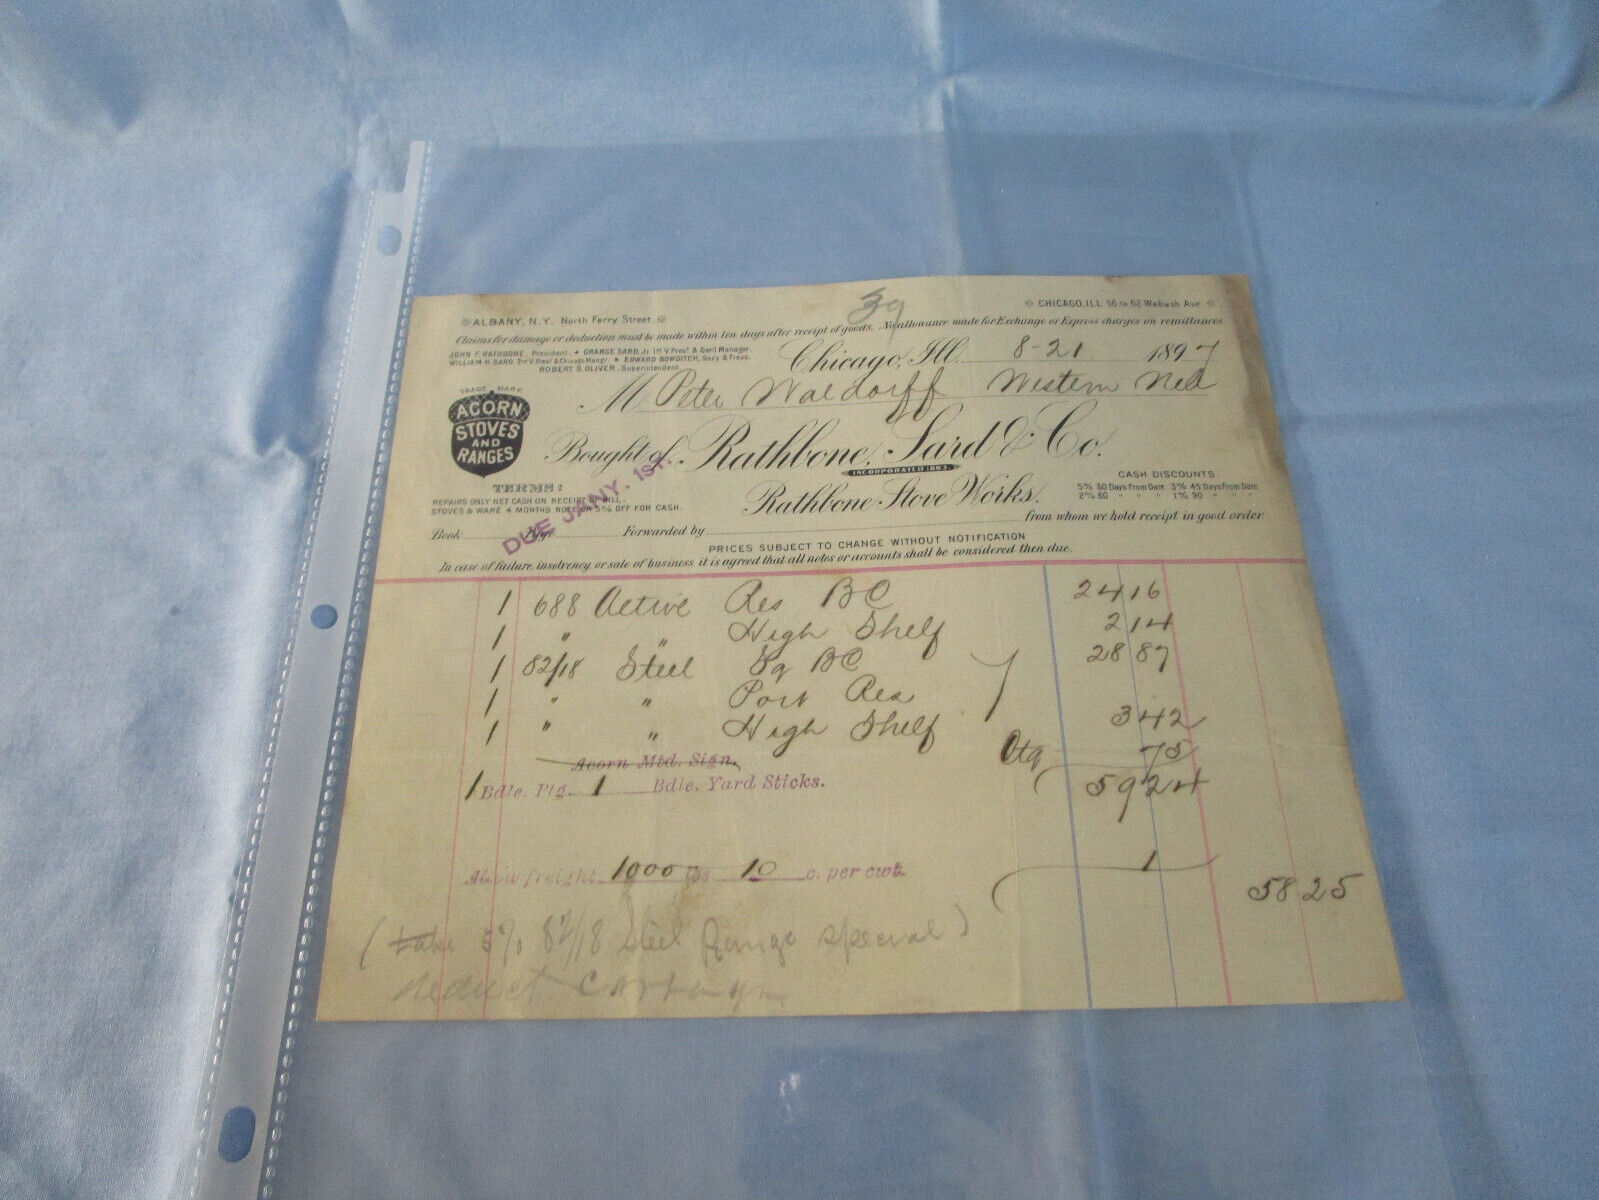 39
ALBANY, N.Y. North Ferry Street.
CHICAGO, ILL 56 to 62 Wabash Ave.
Claims for damage or deduction must be made within ten days after receipt of goods. No allowance made for Exchange or Express charges on remittances.
JOHN F. RATHBONE, President. GRANGE SARD, Jr. 1st V Pres't & Gen'l Manager.
WILLIAM H. SARD, 2nd V Pres't & Chicago Mangr. EDWARD BOWDITCH, Secy & Treas.
ROBERT S. OLIVER, Superintendent.
Chicago, Ill. 8-21 1897
M Peter Waldorff Western Neb
TRADE MARK
ACORN
STOVES
AND
RANGES
Bought of Rathbone, Sard & Co.
INCORPORATED 1883.
Rathbone Stove Works.
CASH DISCOUNTS
5% 30 Days From Date 3% 45 Days From Date
2% 60 " " " 1% 90 " " "
TERMS:
REPAIRS ONLY NET CASH ON RECEIPT OF BILL.
STOVES & WARE 4 MONTHS NOTE OR 5% OFF FOR CASH.
DUE JANY. 1st.
from whom we hold receipt in good order.
Book Page Forwarded by
PRICES SUBJECT TO CHANGE WITHOUT NOTIFICATION
In case of failure, insolvency, or sale of business, it is agreed that all notes or accounts shall be considered then due.
1 688 Active Res BC 24 16
1 " " High Shelf 2 14
1 82/18 Steel Sq BC 28 87
1 " " Port Res
1 " " High Shelf 3 42
Acorn Mtd. Sign.
Ctg 75
1 Bdle. Ptg. 1 Bdle. Yard Sticks. 59 24
Allow freight 1000 lbs 10 c. per cwt. 1
58 25
(take 5% 82/18 Steel Range special)
deduct